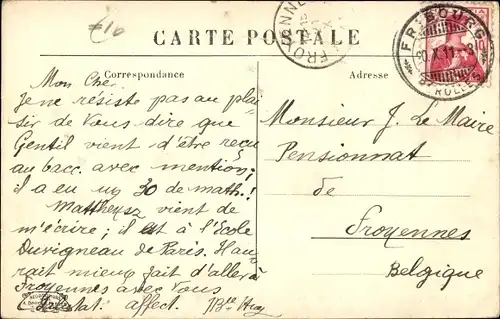 €10
CARTE POSTALE
FROYENNES
FRIBOURG
20.X.11.-8
10
Correspondance
Adresse
Mon Cher
Je ne résiste pas au plai
sir de Vous dire que
Gentil vient d'être reçu
au bacc. avec mention;
il a eu un 30 de math.!
Mattheysz vient de
m'écrire; il est à l'École
Duvigneau de Paris. Il au
rait mieux fait d'aller à
Froyennes avec Vous
affect.
Monsieur J. Le Maire
Pensionnat
de
Froyennes
Belgique